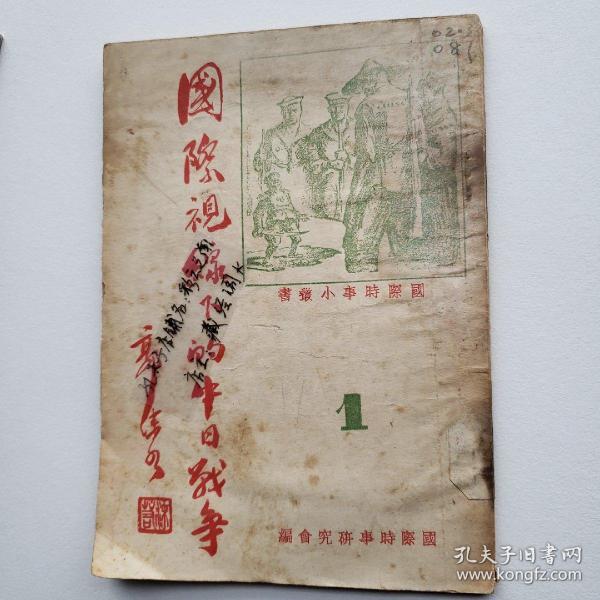 國際視線下的中日戰爭
郭沫若
沫若
國際時事小叢書
1
國際時事研究會編
孔夫子旧书网
www.kongfz.com